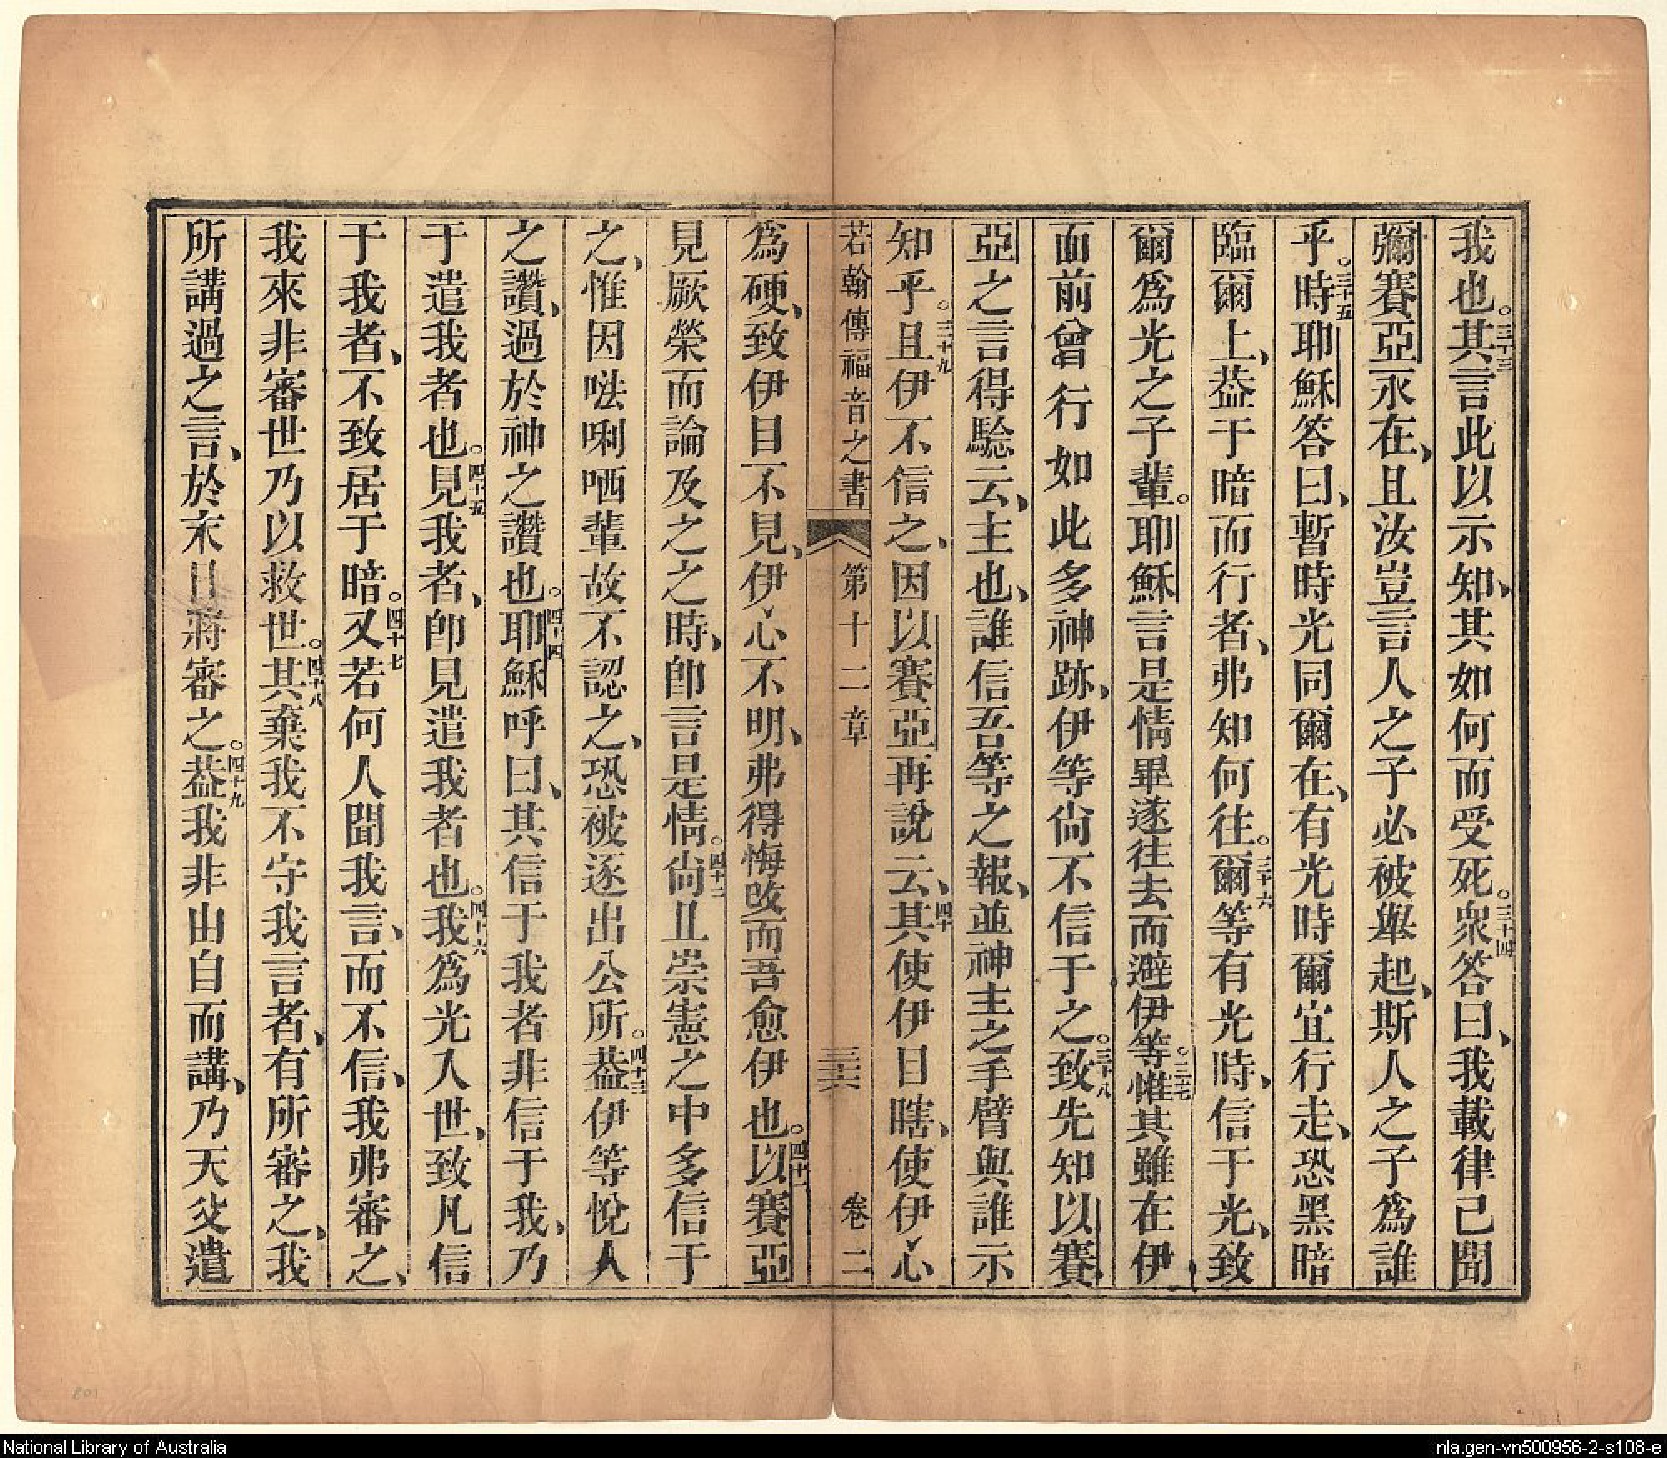 我也。三十三其言此以示知、其如何而受死。三十四衆答曰、我載律已聞
彌賽亞永在、且汝豈言人之子必被舉起、斯人之子爲誰
乎。三十五時耶穌答曰、暫時光同爾在、有光時爾宜行走、恐黑暗
臨爾上、葢于暗而行者、弗知何往。三十六爾等有光時、信于光、致
爾爲光之子輩。耶穌言是情畢遂往去而避伊等。三十七惟其雖在伊
面前曾行如此多神跡、伊等尙不信于之。三十八致先知以賽
亞之言得驗云、主也、誰信吾等之報、並神主之手臂與誰示
知乎。三十九且伊不信之、因以賽亞再說云、四十其使伊目瞎、使伊心
若翰傳福音之書 第十二章 三十六 卷二
爲硬、致伊目不見、伊心不明、弗得悔改而吾愈伊也。四十一以賽亞
見厥榮而論及之之時、卽言是情。四十二尙且崇憲之中多信于
之、惟因𠵽唎哂輩故不認之、恐被逐出公所。四十三葢伊等悅人
之讚、過於神之讚也。四十四耶穌呼曰、其信于我者非信于我、乃
于遣我者也。四十五見我者、卽見遣我者也。四十六我爲光入世、致凡信
于我者、不致居于暗。四十七又若何人聞我言、而不信、我弗審之、
我來非審世乃以救世。四十八其棄我不守我言者、有所審之、我
所講過之言、於末日將審之。四十九葢我非由自而講、乃天父遣
National Library of Australia
nla.gen-vn500956-2-s108-e